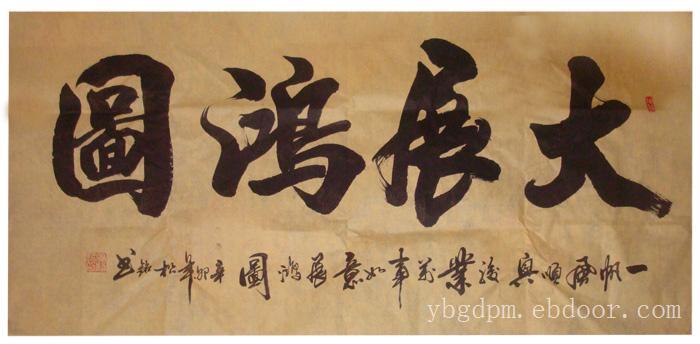 大展鴻圖
一帆風順興業萬事如意展鴻圖 辛卯年松書
ybgdpm.ebdoor.com